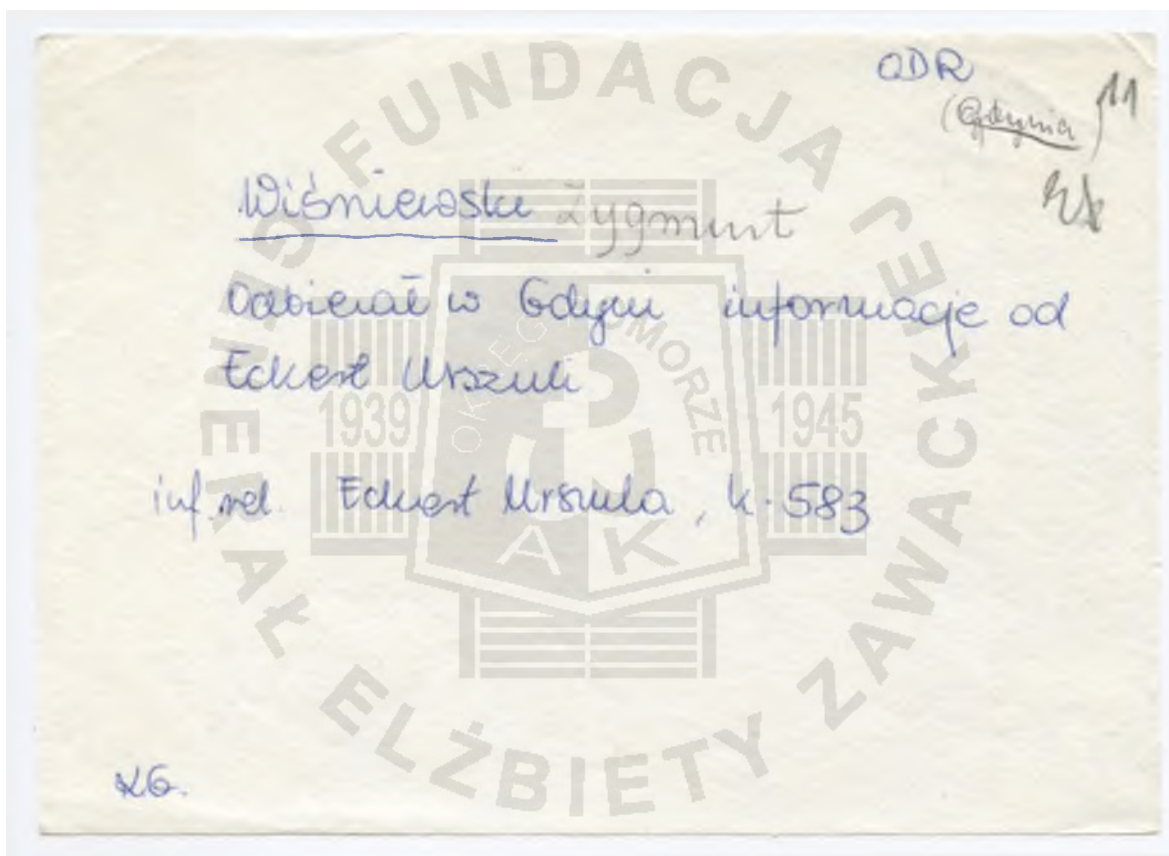 ODR
(Gdynia) 11
Wiśniewski Zygmunt
Odbierał w Gdyni informacje od
Eckert Urszuli
inf. rel. Eckert Urszula, k. 583
FUNDACJA GENERAŁ ELŻBIETY ZAWACKIEJ
OKRĘG POMORZE
1939 1945
AK